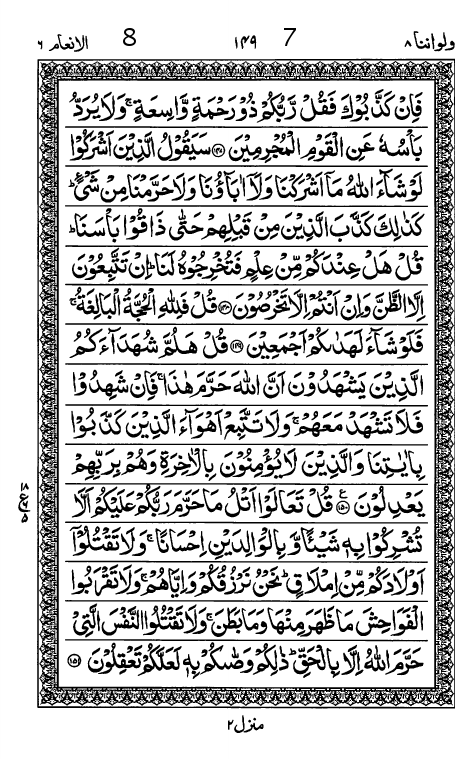 ولواننا ۸ 7 ۱۴۹ 8 الانعام ۶
فَاِنْ كَذَّبُوْكَ فَقُلْ رَّبُّكُمْ ذُوْ رَحْمَةٍ وَّاسِعَةٍ ۚ وَلَا يُرَدُّ
بَاْسُهٗ عَنِ الْقَوْمِ الْمُجْرِمِيْنَ ﴿۱۴۷﴾ سَيَقُوْلُ الَّذِيْنَ اَشْرَكُوْا
لَوْ شَآءَ اللّٰهُ مَاۤ اَشْرَكْنَا وَلَاۤ اٰبَآؤُنَا وَلَا حَرَّمْنَا مِنْ شَيْءٍ ؕ
كَذٰلِكَ كَذَّبَ الَّذِيْنَ مِنْ قَبْلِهِمْ حَتّٰى ذَاقُوْا بَاْسَنَا ؕ
قُلْ هَلْ عِنْدَكُمْ مِّنْ عِلْمٍ فَتُخْرِجُوْهُ لَنَا ؕ اِنْ تَتَّبِعُوْنَ
اِلَّا الظَّنَّ وَاِنْ اَنْتُمْ اِلَّا تَخْرُصُوْنَ ﴿۱۴۸﴾ قُلْ فَلِلّٰهِ الْحُجَّةُ الْبَالِغَةُ ۚ
فَلَوْ شَآءَ لَهَدٰىكُمْ اَجْمَعِيْنَ ﴿۱۴۹﴾ قُلْ هَلُمَّ شُهَدَآءَكُمُ
الَّذِيْنَ يَشْهَدُوْنَ اَنَّ اللّٰهَ حَرَّمَ هٰذَا ۚ فَاِنْ شَهِدُوْا
فَلَا تَشْهَدْ مَعَهُمْ ۚ وَلَا تَتَّبِعْ اَهْوَآءَ الَّذِيْنَ كَذَّبُوْا
بِاٰيٰتِنَا وَالَّذِيْنَ لَا يُؤْمِنُوْنَ بِالْاٰخِرَةِ وَهُمْ بِرَبِّهِمْ
يَعْدِلُوْنَ ﴿۱۵۰﴾ ع قُلْ تَعَالَوْا اَتْلُ مَا حَرَّمَ رَبُّكُمْ عَلَيْكُمْ اَلَّا
تُشْرِكُوْا بِهٖ شَيْئًا وَّ بِالْوَالِدَيْنِ اِحْسَانًا ۚ وَلَا تَقْتُلُوْۤا
اَوْلَادَكُمْ مِّنْ اِمْلَاقٍ ؕ نَحْنُ نَرْزُقُكُمْ وَاِيَّاهُمْ ۚ وَلَا تَقْرَبُوا
الْفَوَاحِشَ مَا ظَهَرَ مِنْهَا وَمَا بَطَنَ ۚ وَلَا تَقْتُلُوا النَّفْسَ الَّتِيْ
حَرَّمَ اللّٰهُ اِلَّا بِالْحَقِّ ؕ ذٰلِكُمْ وَصّٰىكُمْ بِهٖ لَعَلَّكُمْ تَعْقِلُوْنَ ﴿۱۵۱﴾
منزل ۲